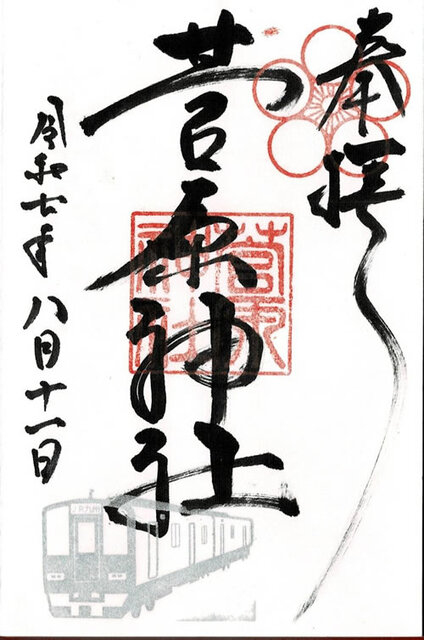 奉拝
菅原神社
菅原神社
令和七年八月十一日
JR九州